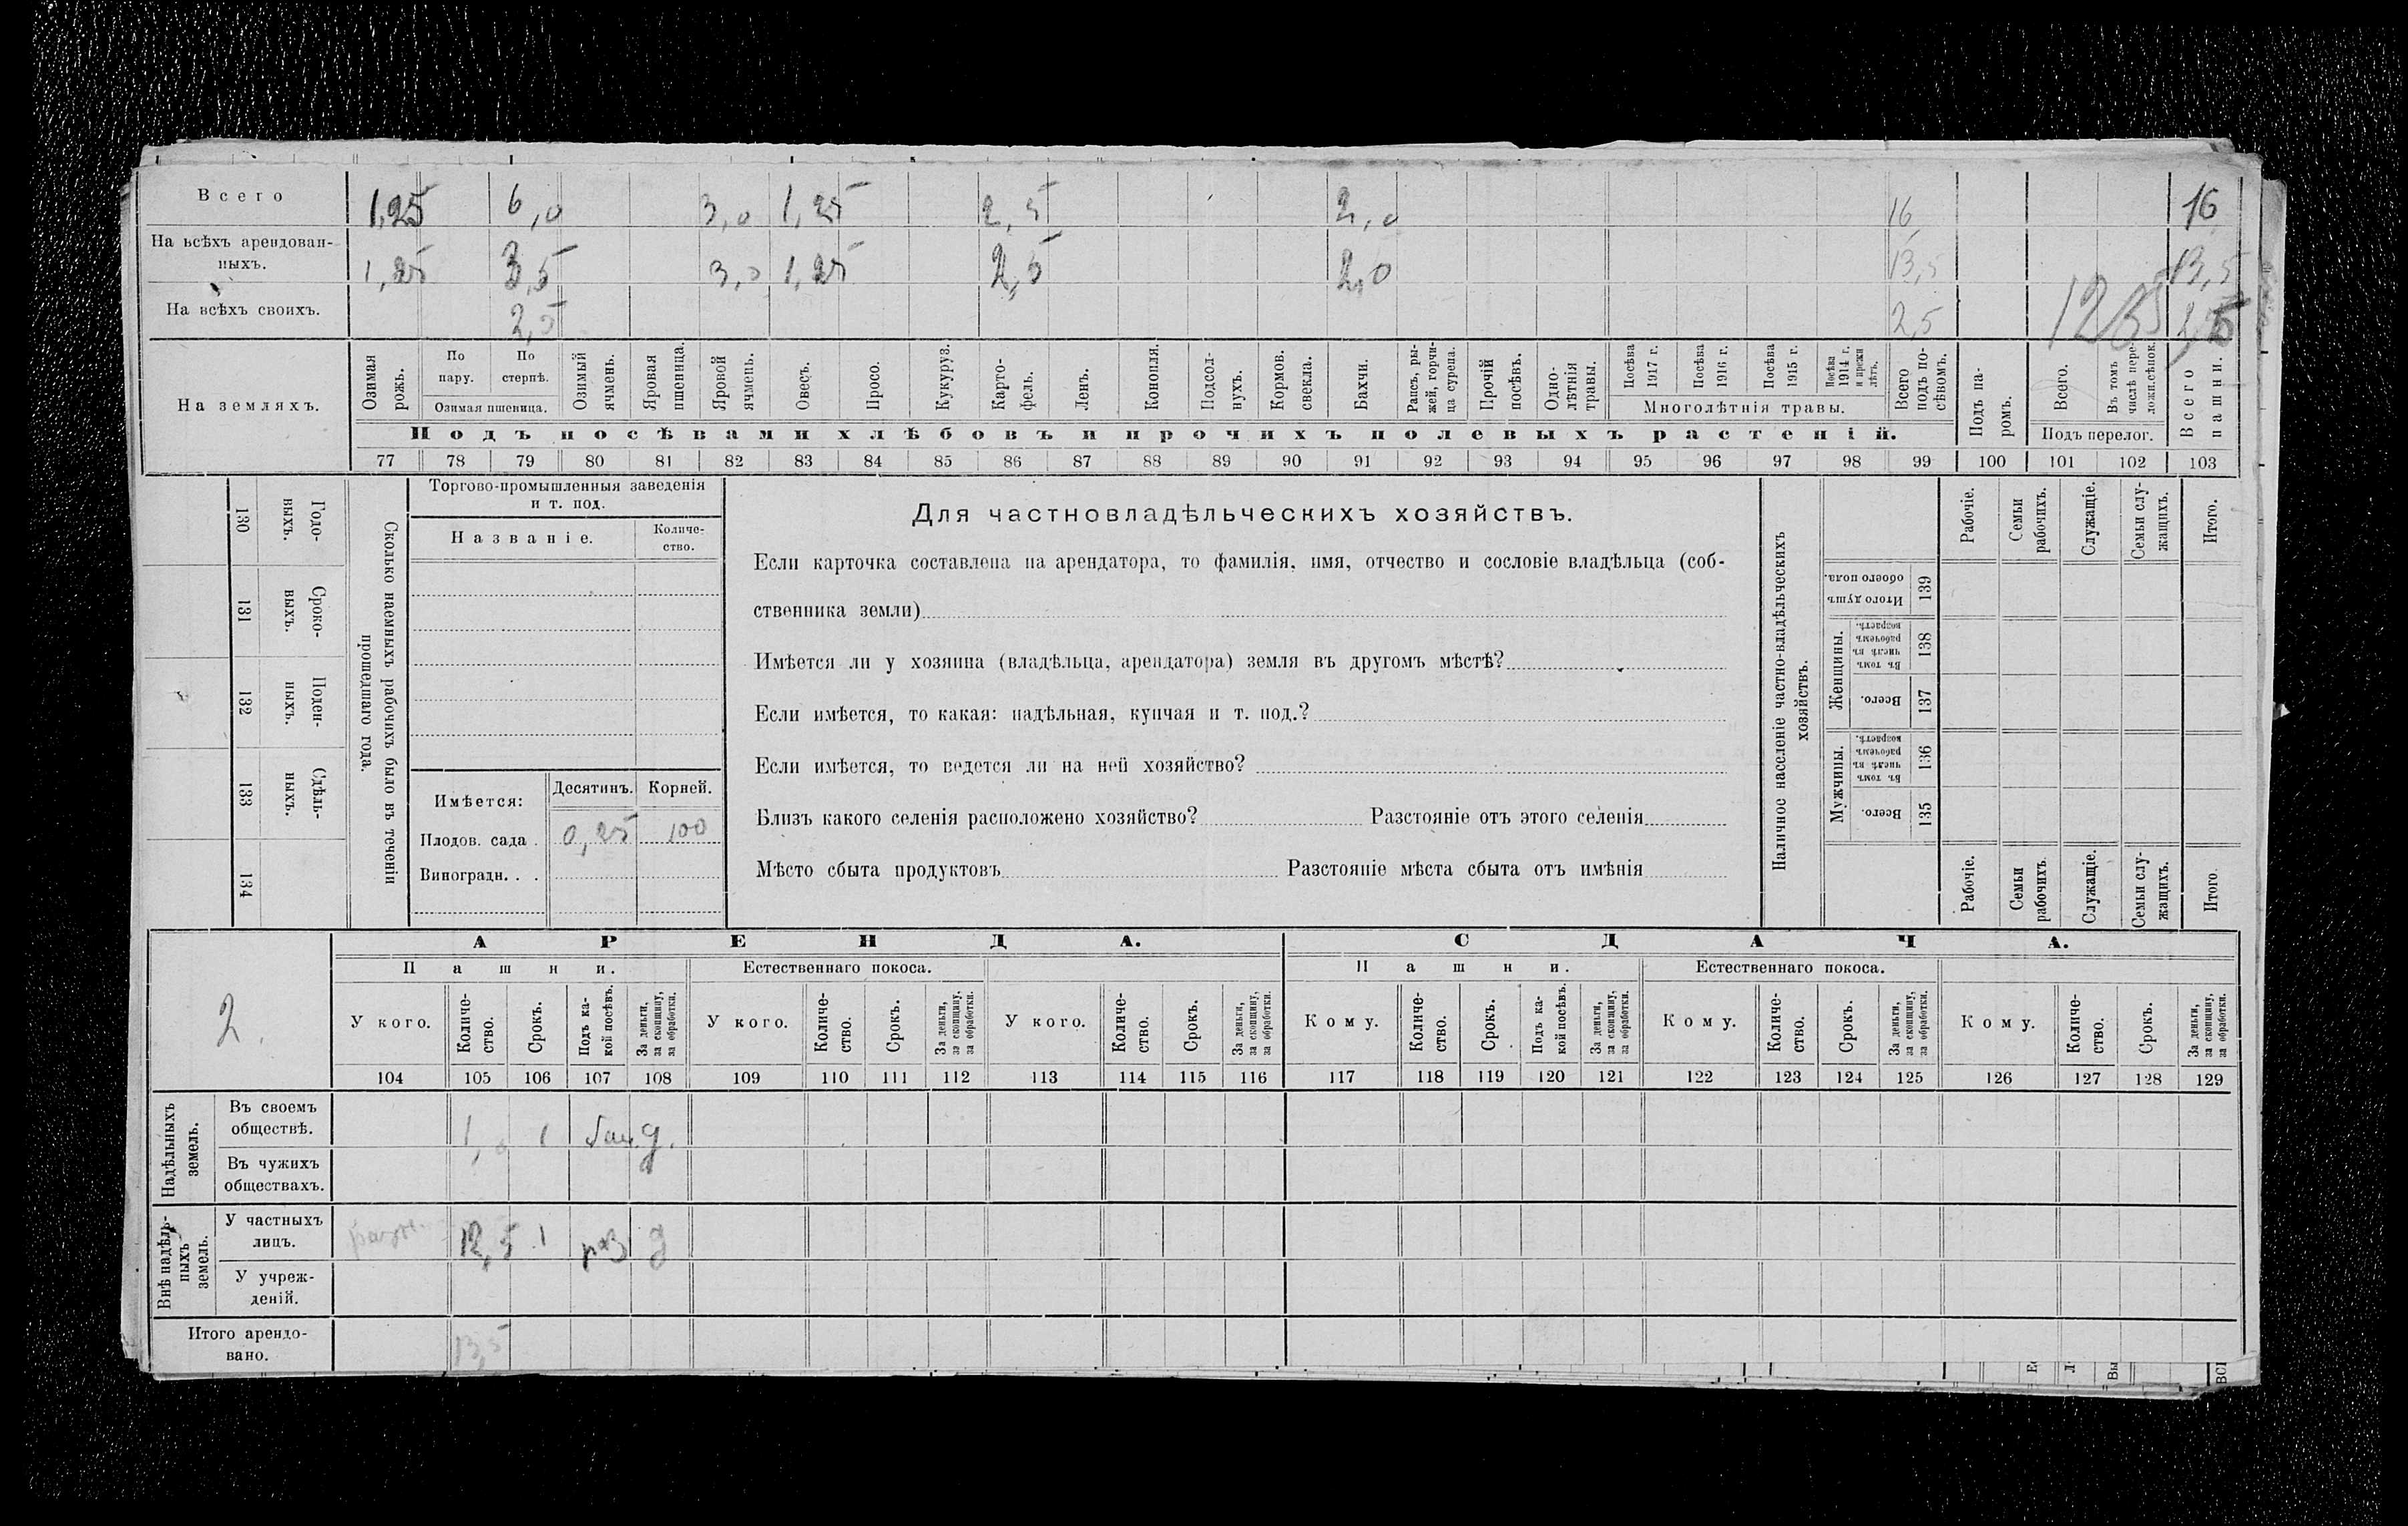 Всего 1,25 6,0 3,0 1,25 2,5 2,0 16 16
На всѣхъ арендован-
ныхъ. 1,25 3,5 3,0 1,25 2,5 2,0 13,5 13,5
На всѣхъ своихъ. 2,5 2,5 2,5
На земляхъ.
Озимая рожь.
По пару.
По стернѣ.
Озимая пшеница.
Озимый ячмень.
Яровая пшеница.
Яровой ячмень.
Овесъ.
Просо.
Кукуруз.
Карто-
фель.
Ленъ.
Конопля.
Подсол-
нухъ.
Кормов. свекла.
Бахчи.
Рапсъ, ры-
жей, горчи-
ца сурепа.
Прочій посѣвъ.
Одно-
лѣтнія травы.
Посѣва 1917 г.
Посѣва 1916 г.
Посѣва 1915 г.
Посѣва 1914 г. и прежн лѣтъ.
Многолѣтнія травы.
Всего подъ по-
сѣвомъ.
Подъ па-
ромъ.
Всего.
Въ томъ числѣ пере-
ложн.сѣнок.
Подъ перелог.
Всего пашни.
Подъ посѣвами хлѣбовъ и прочихъ полевыхъ растеній.
77 78 79 80 81 82 83 84 85 86 87 88 89 90 91 92 93 94 95 96 97 98 99 100 101 102 103
130 Годо-
выхъ.
131 Сроко-
выхъ.
132 Поден-
ныхъ.
133 Сдѣль-
ныхъ.
134
Сколько наемныхъ рабочихъ было въ теченіи
прошедшаго года.
Торгово-промышленныя заведенія
и т. под.
Названіе.
Количе-
ство.
Имѣется: Десятинъ. Корней.
Плодов. сада . 0,25 100
Виноградн. . .
Для частновладѣльческихъ хозяйствъ.
Если карточка составлена на арендатора, то фамилія, имя, отчество и сословіе владѣльца (соб-
ственника земли)
Имѣется ли у хозяина (владѣльца, арендатора) земля въ другомъ мѣстѣ?
Если имѣется, то какая: надѣльная, купчая и т. под.?
Если имѣется, то ведется ли на ней хозяйство?
Близъ какого селенія расположено хозяйство? Разстояніе отъ этого селенія
Мѣсто сбыта продуктовъ Разстояніе мѣста сбыта отъ имѣнія
Наличное населеніе частно-владѣльческихъ
хозяйствъ.
Рабочіе.
Семьи рабочихъ.
Служащіе.
Семьи слу-
жащихъ.
Итого.
Итого душъ обоего пола. 139
Женщины.
Въ томъ числѣ въ рабочемъ возрастѣ. 138
Всего. 137
Мужчины.
Въ томъ числѣ въ рабочемъ возрастѣ. 136
Всего. 135
Рабочіе.
Семьи рабочихъ.
Служащіе.
Семьи слу-
жащихъ.
Итого.
2.
АРЕНДА. СДАЧА.
Пашни. Естественнаго покоса. Пашни. Естественнаго покоса.
У кого.
Количе-
ство.
Срокъ.
Подъ ка-
кой посѣвъ.
За деньги,
за скопщину,
за обработки.
У кого.
Количе-
ство.
Срокъ.
За деньги,
за скопщину,
за обработки.
У кого.
Количе-
ство.
Срокъ.
За деньги,
за скопщину,
за обработки.
Кому.
Количе-
ство.
Срокъ.
Подъ ка-
кой посѣвъ.
За деньги,
за скопщину,
за обработки.
Кому.
Количе-
ство.
Срокъ.
За деньги,
за скопщину,
за обработки.
Кому.
Количе-
ство.
Срокъ.
За деньги,
за скопщину,
за обработки.
104 105 106 107 108 109 110 111 112 113 114 115 116 117 118 119 120 121 122 123 124 125 126 127 128 129
Надѣльныхъ
земель.
Въ своемъ
обществѣ. 1,0 1 д.
Въ чужихъ
обществахъ.
Внѣ надѣль-
ныхъ
земель.
У частныхъ
лицъ. 12,5 1 раз д
У учреж-
деній.
Итого арендо-
вано. 13,5